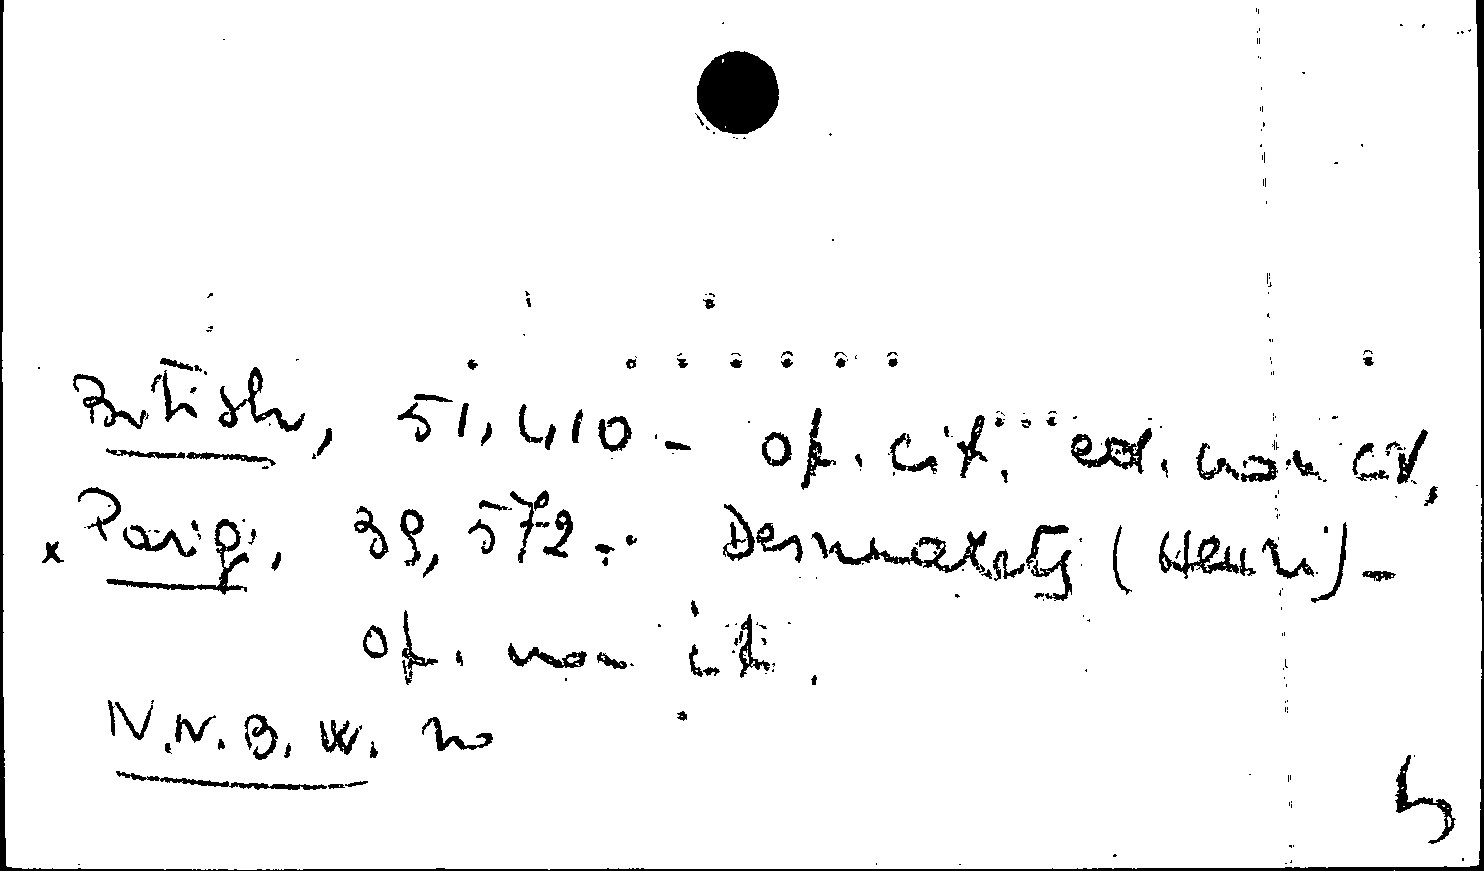 British, 51,410 - op. cit. ed. non cit.
x Parig., 39,572 - Desmarets (Henri) -
op. non cit.
N.N.B.W. no